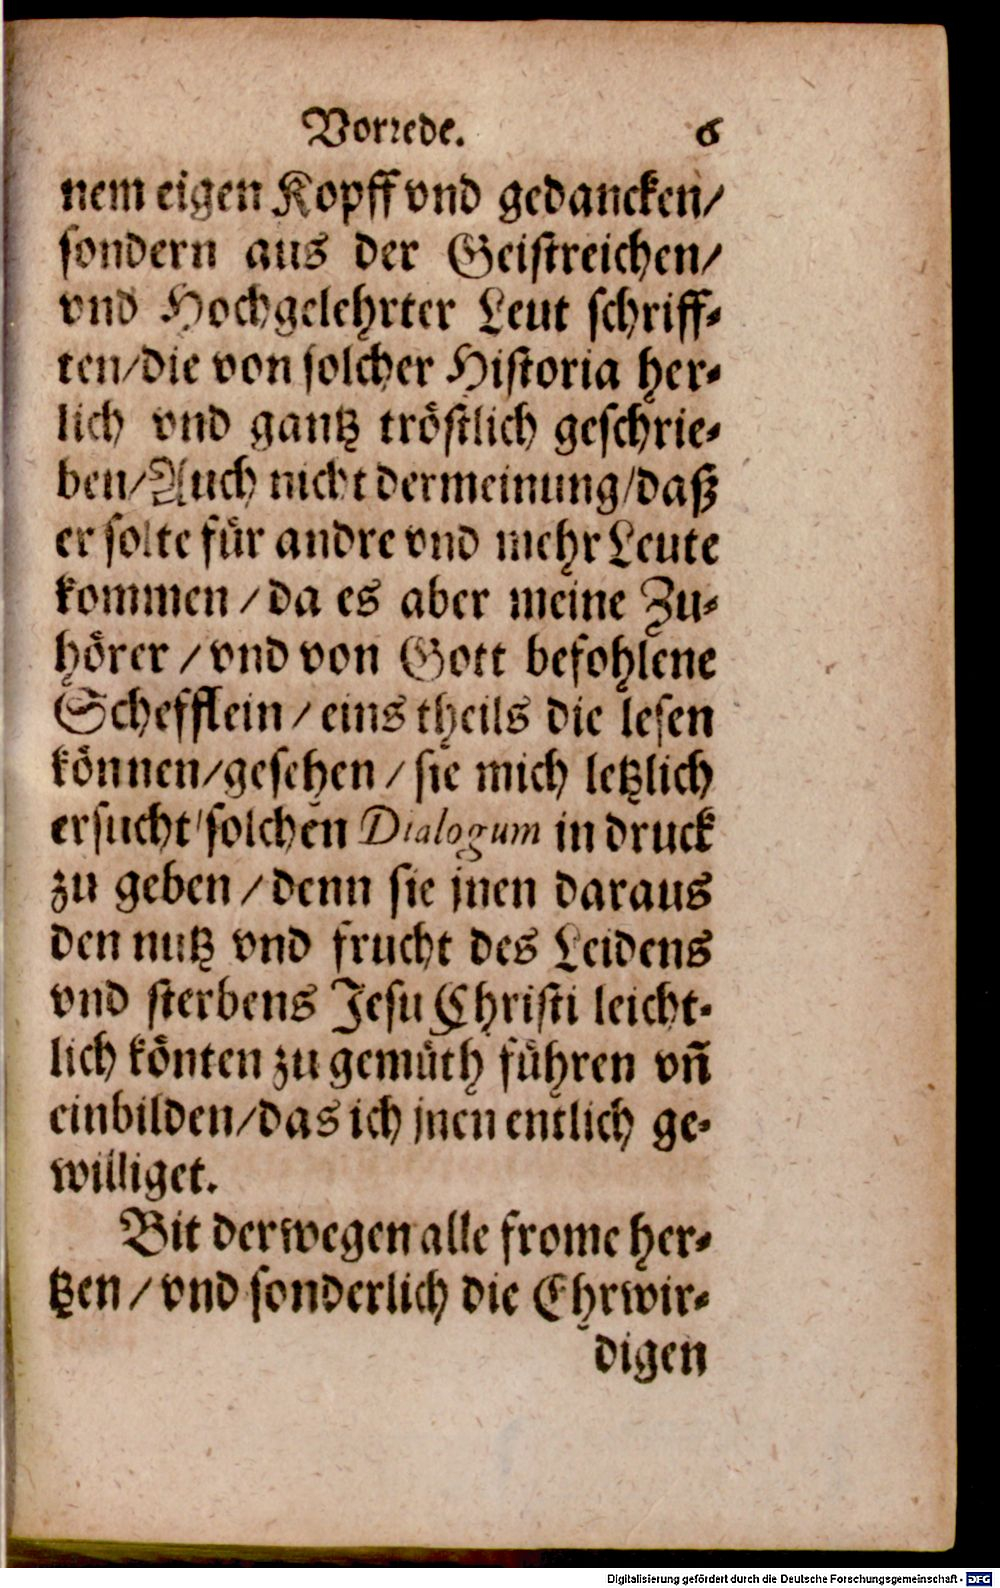 Vorrede. 6
nem eigen Kopff vnd gedancken/
sondern aus der Geistreichen/
vnd Hochgelehrter Leut schriff-
ten/die von solcher Historia her-
lich vnd gantz tröstlich geschrie-
ben/Auch nicht der meinung/daß
er solte für andre vnd mehr Leute
kommen/da es aber meine Zu-
hörer/vnd von Gott befohlene
Schefflein/eins theils die lesen
können/gesehen/sie mich letzlich
ersucht/solchen Dialogum in druck
zu geben/denn sie jnen daraus
den nutz vnd frucht des Leidens
vnd sterbens Jesu Christi leicht-
lich könten zu gemüth führen vñ
einbilden/das ich jnen entlich ge-
williget.
Bit derwegen alle frome her-
tzen/vnd sonderlich die Ehrwir-
digen
Digitalisierung gefördert durch die Deutsche Forschungsgemeinschaft - DFG